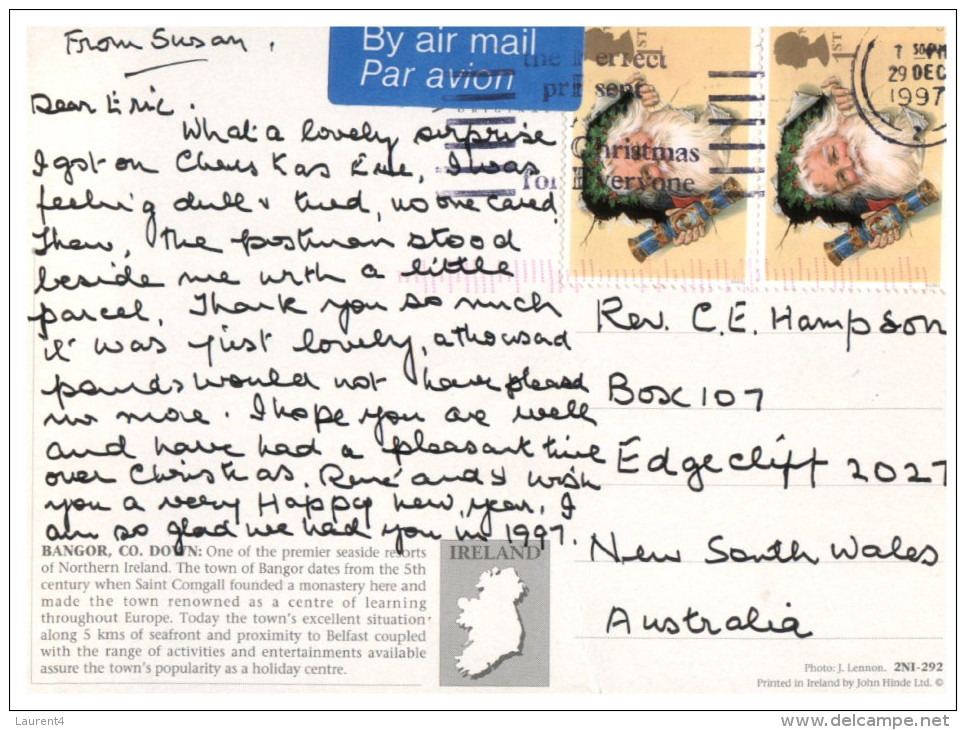 From Susan.
By air mail
Par avion
1ST
1ST
the Perfect
present
Christmas
for Everyone
7 30PM
29 DEC
1997
Dear Eric.
What a lovely surprise
I got on Christmas Eve, I was
feeling dull & tired, no one cared.
Then, the postman stood
beside me with a little
parcel. Thank you so much
it was just lovely, a thousad
pounds would not have pleased
no more. I hope you are well
and have had a pleasant time
over Christmas. René and I wish
you a very Happy new year, I
am so glad we had you in 1997.
Rev. C.E. Hampson
Box 107
Edgecliff 2027
New South Wales
Australia
BANGOR, CO. DOWN: One of the premier seaside resorts
of Northern Ireland. The town of Bangor dates from the 5th
century when Saint Comgall founded a monastery here and
made the town renowned as a centre of learning
throughout Europe. Today the town's excellent situation
along 5 kms of seafront and proximity to Belfast coupled
with the range of activities and entertainments available
assure the town's popularity as a holiday centre.
IRELAND
Photo: J. Lennon. 2NI-292
Printed in Ireland by John Hinde Ltd. ©
Laurent4
www.delcampe.net